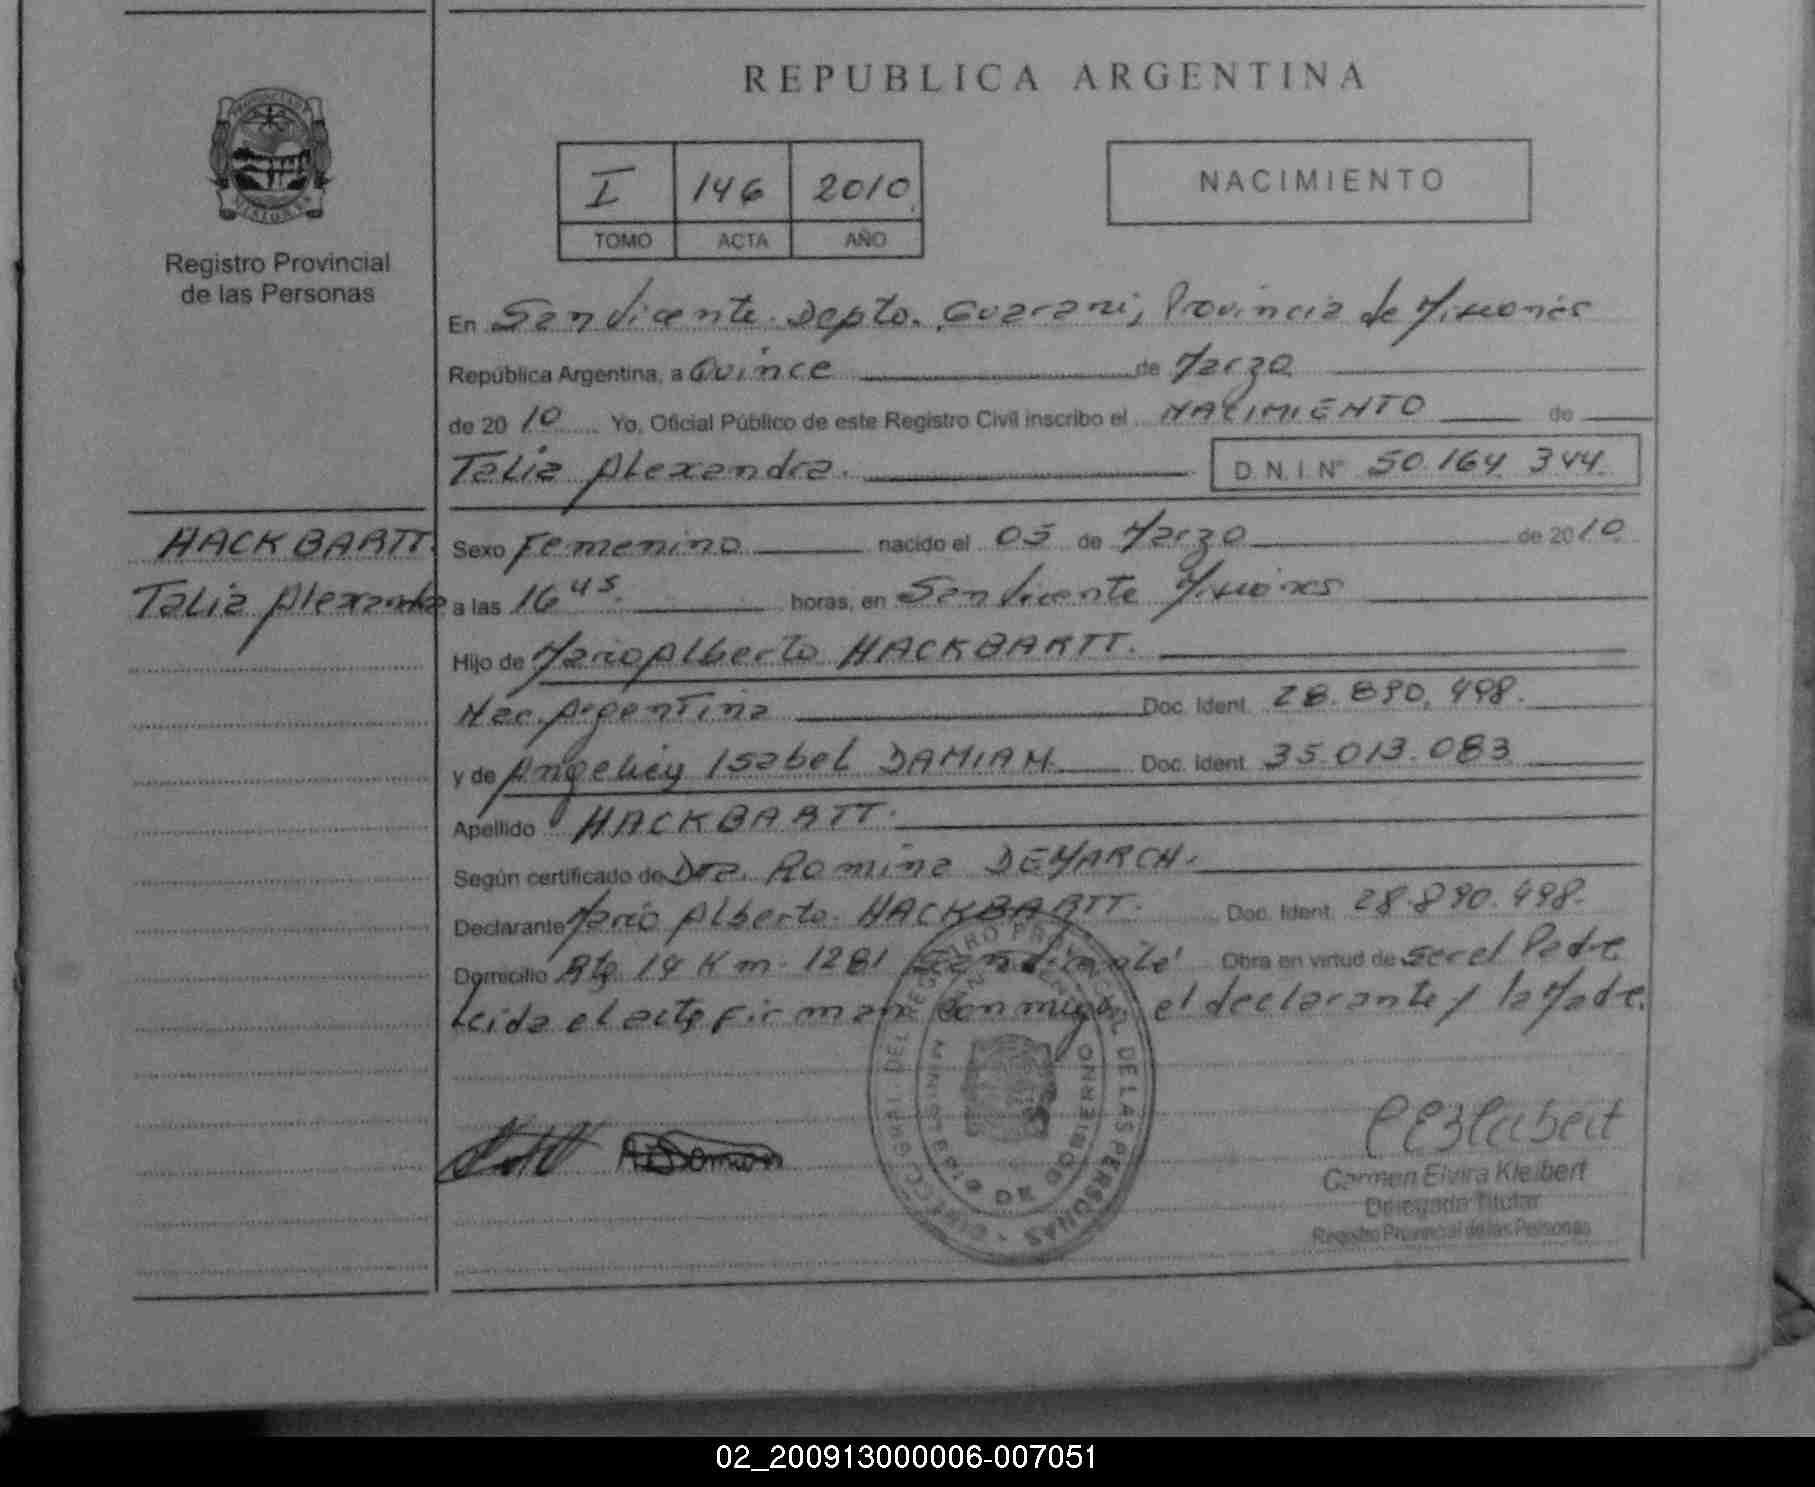 REPUBLICA ARGENTINA
PROVINCIA DE
MISIONES
Registro Provincial
de las Personas
I 146 2010
TOMO ACTA AÑO
NACIMIENTO
En San Vicente. Depto. Guarani, Provincia de Misiones
República Argentina, a Quince de Marzo
de 2010 Yo, Oficial Público de este Registro Civil inscribo el NACIMIENTO de
Talia Alexandra. D.N.I. Nº 50.164 344.
HACKBARTT.
Talia Alexandra
Sexo Femenino nacido el 05 de Marzo de 2010
a las 16 45. horas, en San Vicente Misiones
Hijo de Mario Alberto HACKBARTT.
Nac. Argentina Doc. Ident. 28.890.498.
y de Isabel DAMIAN. Doc. Ident. 35.013.083
Apellido HACKBARTT.
Según certificado de Dra. Romina DEMARCH.
Declarante Mario Alberto HACKBARTT. Doc. Ident. 28.890.498.
Domicilio Rta 14 Km. 1281 San Vicente Obra en virtud de ser el Padre
Leida el acta firman conmigo, el declarante y la Madre.
DEL REGISTRO PROVINCIAL DE LAS PERSONAS
MINISTERIO DE GOBIERNO
Carmen Elvira Kleibert
Delegada Titular
Registro Provincial de las Personas
02_200913000006-007051